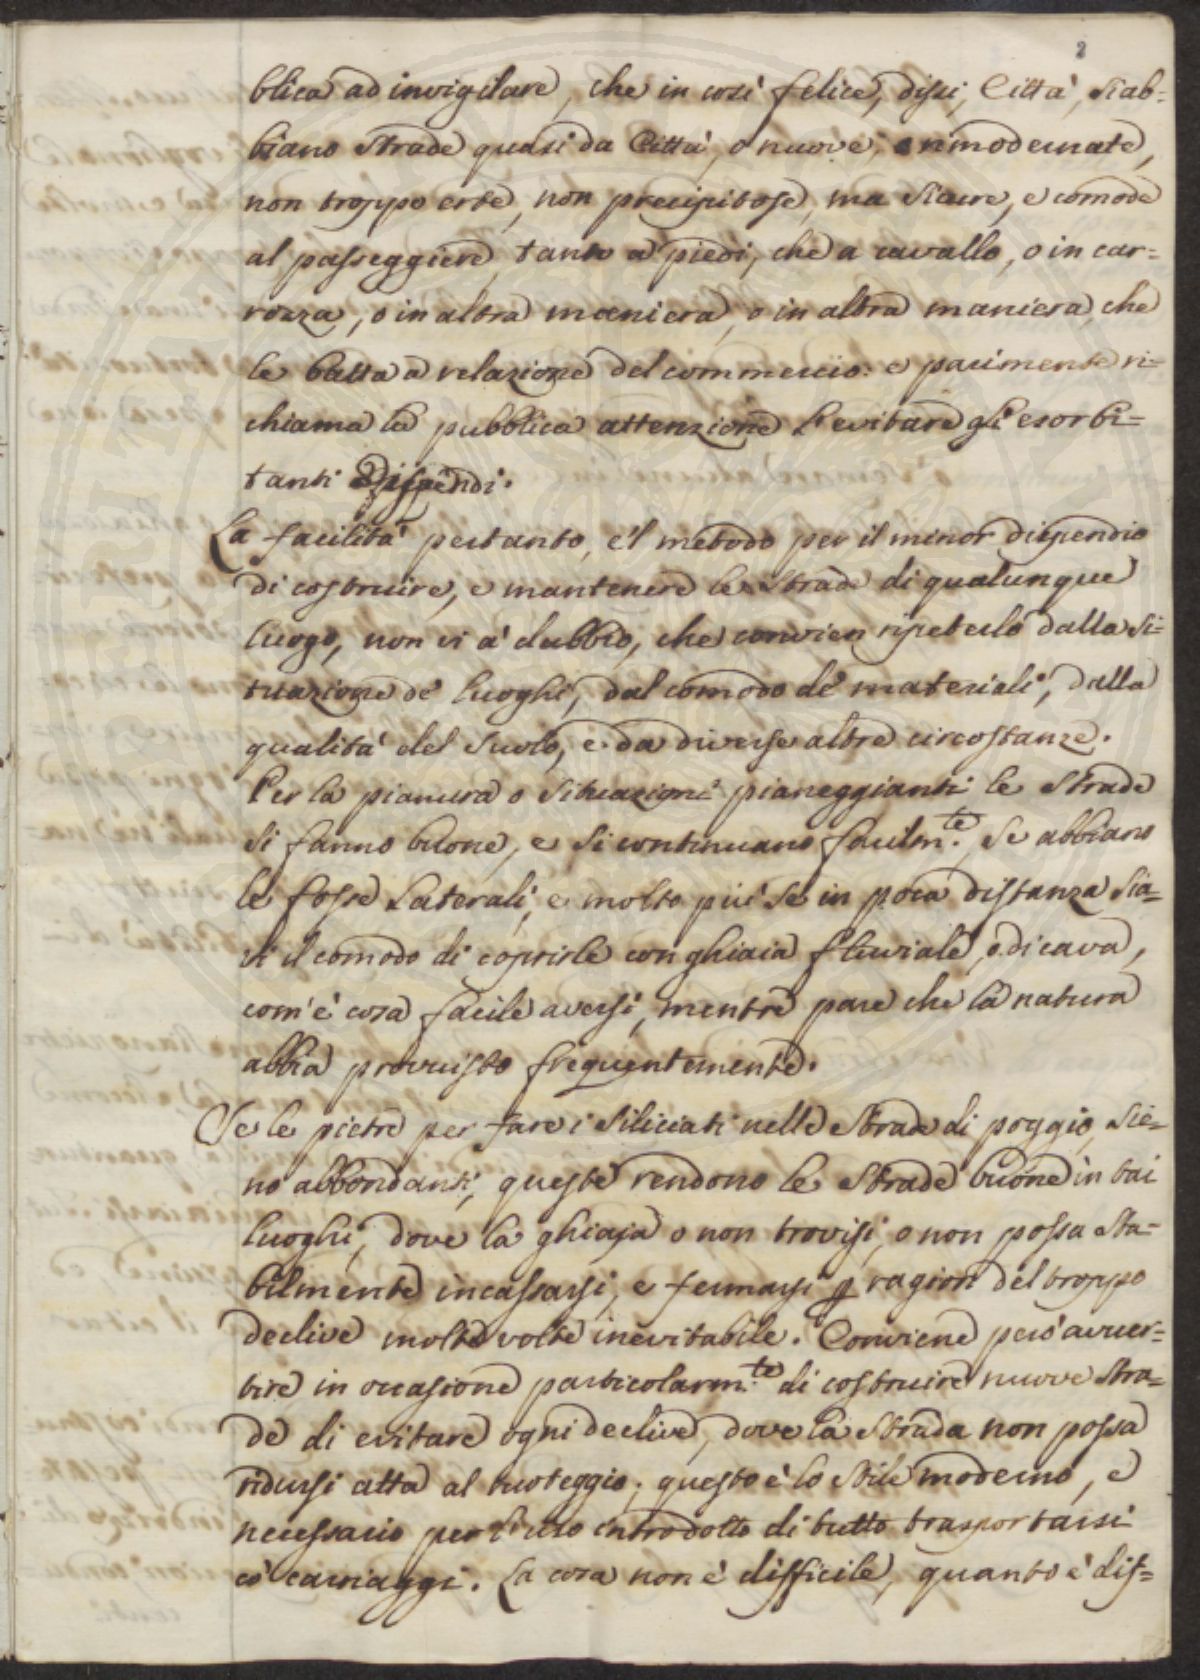 2
blica ad invigilare, che in così felice, dissi, Città, s'ab-
biano strade quasi da Città, o nuove, o rimodernate,
non troppo erte, non precipitose, ma sicure, e comode
al passeggiere, tanto a piedi, che a cavallo, o in car-
rozza, o in altra maniera, o in altra maniera, che
le batta a relazione del commercio: e parimente ri-
chiama la pubblica attenzione l'evitare gli esorbi-
tanti dispendi.
La facilità pertanto, e'l metodo per il minor dispendio
di costruire, e mantenere le strade di qualunque
luogo, non vi à dubbio, che convien ripeterlo dalla si-
tuazione de' luoghi, dal comodo de' materiali, dalla
qualità del suolo, e da diverse altre circostanze.
Per la pianura o situazioni pianeggianti le strade
si fanno buone, e si continuano facilm.te, se abbiano
le fosse laterali, e molto più se in poca distanza sia-
vi il comodo di coprirle con ghiaia fluviale, o di cava,
com'è cosa facile aversi, mentre pare che la natura
abbia provvisto frequentemente.
Se le pietre per fare i siliciati nelle strade di poggio, sie-
no abbondanti, queste rendono le strade buone in tai
luoghi, dove la ghiaja o non trovisi, o non possa sta-
bilmente incassarsi, e fermarsi p ragion del troppo
declive molte volte inevitabile. Conviene però avver-
tire in occasione particolarm.te di costruire nuove stra-
de di evitare ogni declive, dove la strada non possa
ridursi atta al ruoteggio; questo è lo stile moderno, e
necessario per l'uso introdotto di tutto trasportarsi
co' carriaggi. La cosa non è difficile, quanto è dis-